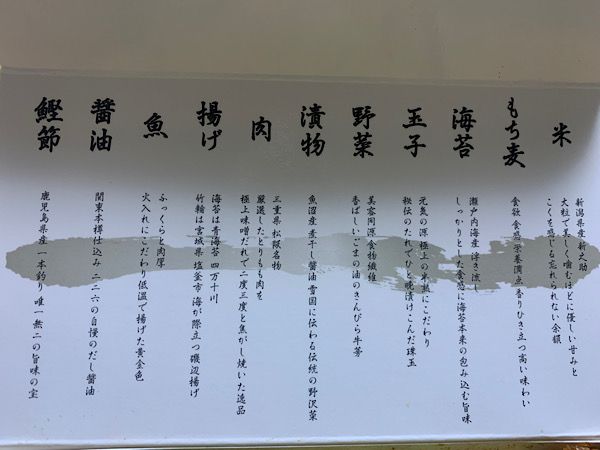 米
新潟県産 新之助
大粒で美しく噛むほどに優しい甘みと
こくを感じる忘れられない余韻
もち麦
食欲 食感 栄養満点 香りひき立つ高い味わい
海苔
瀬戸内海産 浮き流し
しっかりとした食感に海苔本来の包み込む旨味
玉子
元気の源 極上の米麹にこだわり
秘伝のたれでひと晩漬けこんだ珠玉
野菜
美容同源 食物繊維
香ばしいごまの油のきんぴら牛蒡
漬物
魚沼産 煮干し醤油 雪国に伝わる伝統の野沢菜
肉
三重県 松阪名物
厳選したとりもも肉を
極上味噌だれで二度三度と焦がし焼いた逸品
揚げ
海苔は青海苔 四万十川
竹輪は宮城県 塩釜市 海が際立つ磯辺揚げ
魚
ふっくらと肉厚
火入れにこだわり低温で揚げた黄金色
醤油
関東本樽仕込み 二二六の自慢のだし醤油
鰹節
鹿児島県産 一本釣り 唯一無二の旨味の宝